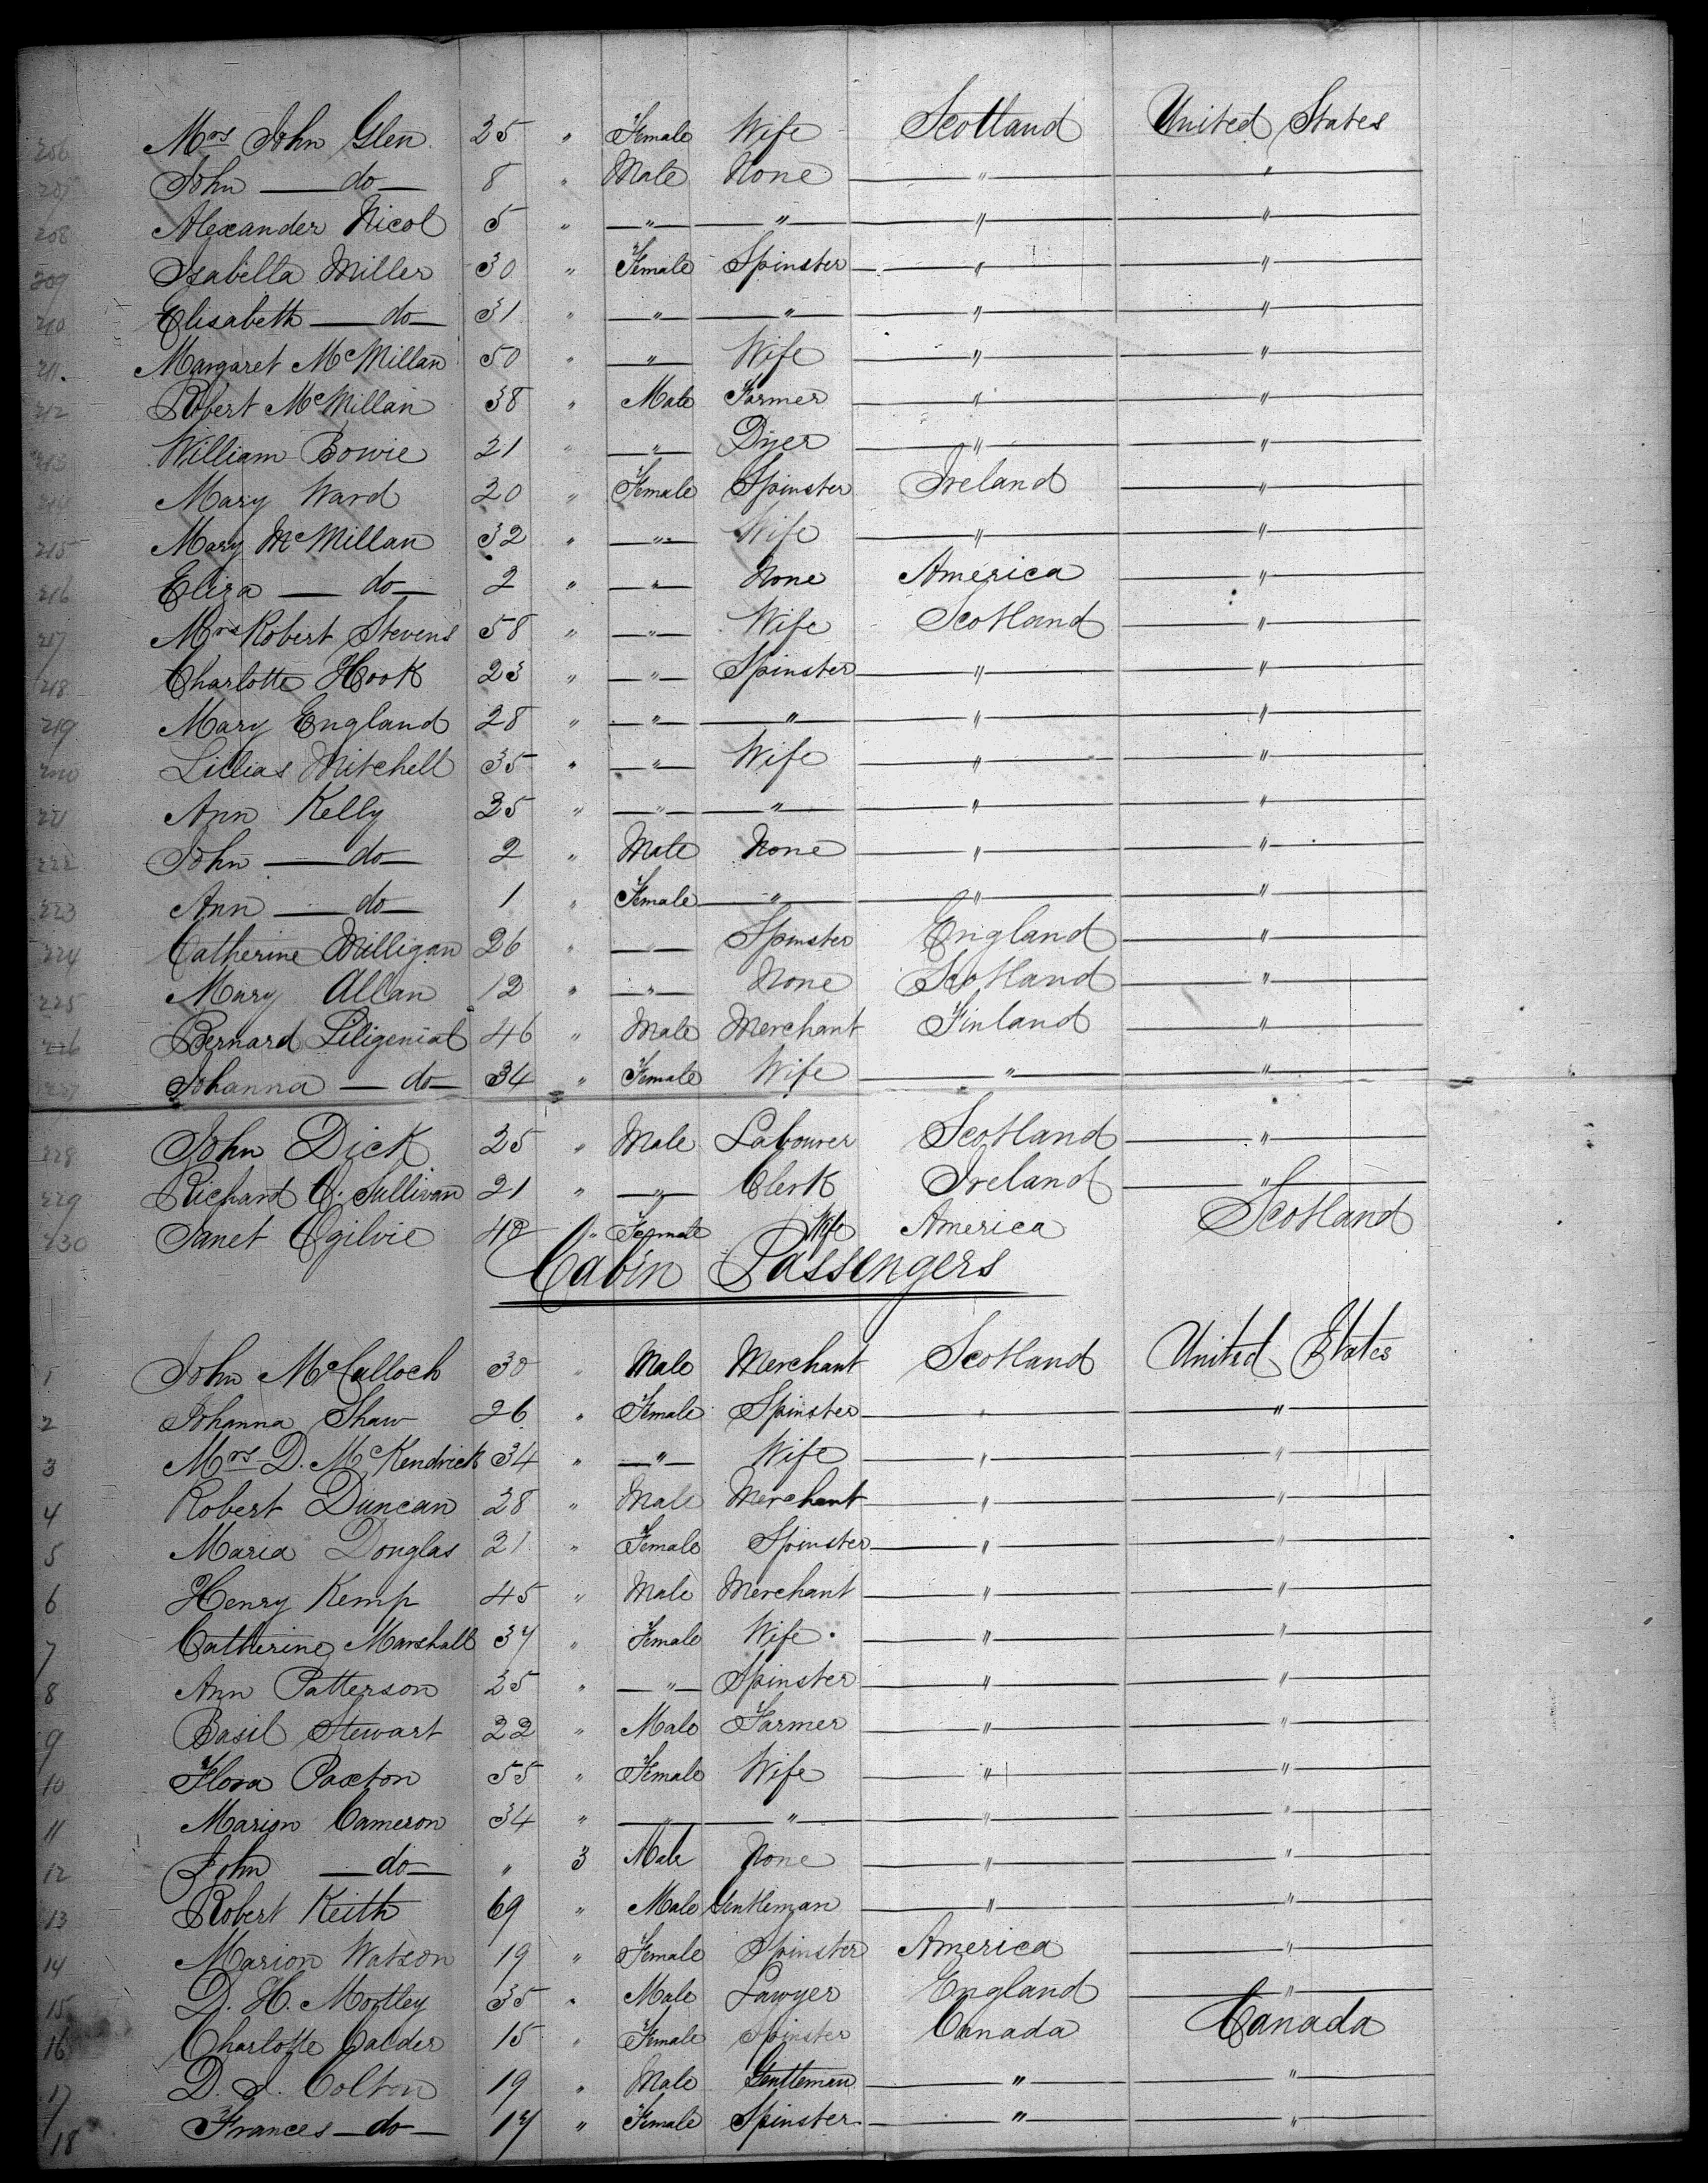 206 Mrs John Glen 35 " Female Wife Scotland United States
207 John — do — 8 " Male None — " — — " —
208 Alexander Nicol 5 " — " — — " — — " — — " —
209 Isabella Miller 30 " Female Spinster — " — — " —
210 Elisabeth — do — 31 " — " — — " — — " — — " —
211. Margaret McMillan 50 " — " — Wife — " — — " —
212 Robert McMillan 38 " Male Farmer — " — — " —
213 William Bowie 21 " — " — Dyer — " — — " —
214 Mary Ward 20 " Female Spinster Ireland — " —
215 Mary McMillan 32 " — " — Wife — " — — " —
216 Eliza — do — 2 " — " — None America — " —
217 Mrs Robert Stevens 58 " — " — Wife Scotland — " —
218 Charlotte Hook 23 " — " — Spinster — " — — " —
219 Mary England 28 " — " — — " — — " — — " —
220 Lillias Mitchell 35 " — " — Wife — " — — " —
221 Ann Kelly 25 " — " — — " — — " — — " —
222 John — do — 2 " Male None — " — — " —
223 Ann — do — 1 " Female — " — — " — — " —
224 Catherine Milligan 26 " — " — Spinster England — " —
225 Mary Allan 12 " — " — None Scotland — " —
226 Bernard 46 " Male Merchant Finland — " —
227 Johanna — do — 34 " Female Wife — " — — " —
228 John Dick 25 " Male Labourer Scotland — " —
229 Richard O. Sullivan 21 " — " — Clerk Ireland — " —
230 Janet Ogilvie " Female Wife America Scotland
Cabin Passengers
1 John McCulloch 30 " Male Merchant Scotland United States
2 Johanna Shaw 26 " Female Spinster — " — — " —
3 Mrs D. McKendrick 34 " — " — Wife — " — — " —
4 Robert Duncan 28 " Male Merchant — " — — " —
5 Maria Douglas 21 " Female Spinster — " — — " —
6 Henry Kemp 45 " Male Merchant — " — — " —
7 Catherine Marshall 37 " Female Wife. — " — — " —
8 Ann Patterson 25 " — " — Spinster — " — — " —
9 Basil Stewart 22 " Male Farmer — " — — " —
10 Flora Paxton 55 " Female Wife — " — — " —
11 Marion Cameron 34 " — " — — " — — " — — " —
12 John — do — " 3 Male None — " — — " —
13 Robert Keith 69 " Male Gentleman — " — — " —
14 Marion Watson 19 " Female Spinster America — " —
15 D. H. Mortley 35 " Male Lawyer England — " —
16 Charlotte Calder 15 " Female Spinster Canada Canada
17 D. J. Colton 19 " Male Gentleman — " — — " —
18 Frances — do — 17 " Female Spinster — " — — " —